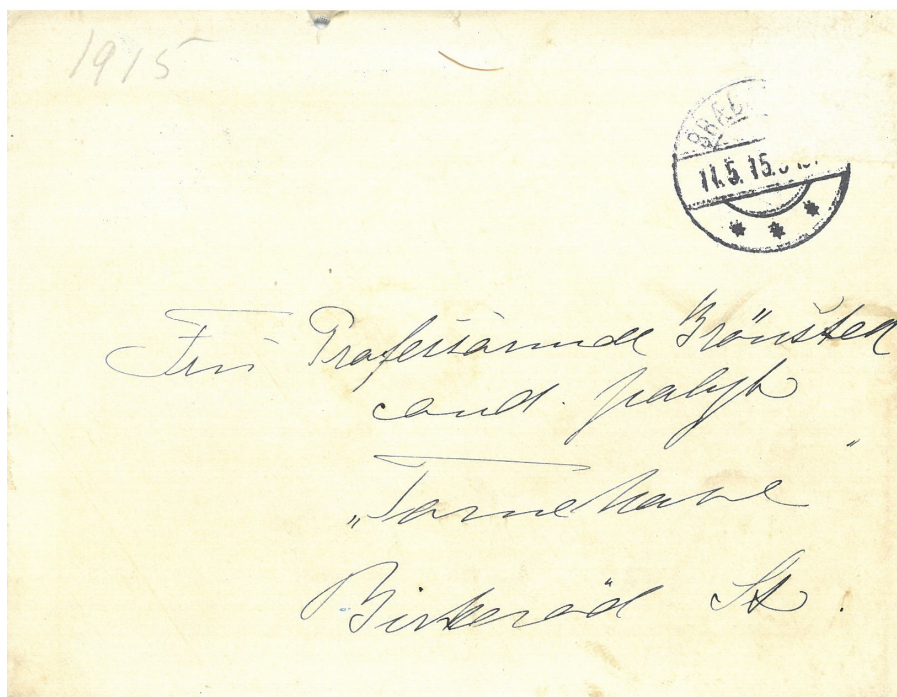 1915
BRÆ
11.5.15.
Fru Professorinde Brönsted
cand. polyt
„Tornehave"
Birkeröd St.